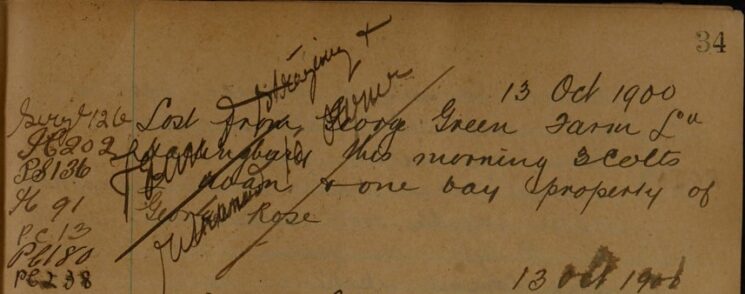 34
13 Oct 1900
Lost from George Green Farm Ln
this morning 3 colts
roan & one bay property of
Geo Rose
Straying &
Sergt 126
PC 202
PS 136
PC 91
PC 13
PC 180
PC 238
13 Oct 1900